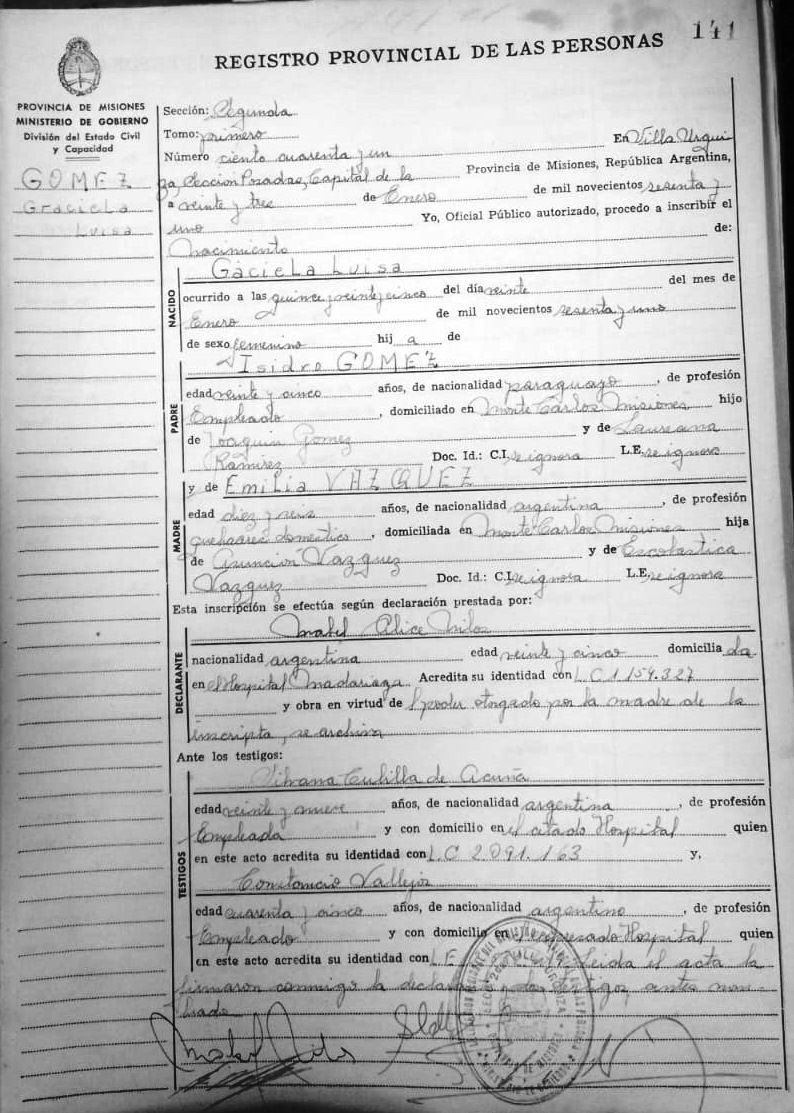 141
REGISTRO PROVINCIAL DE LAS PERSONAS
PROVINCIA DE MISIONES
MINISTERIO DE GOBIERNO
División del Estado Civil
y Capacidad
GOMEZ
Graciela
Luisa
Sección: Segunda
Tomo: primero
En Villa Urqui
Número ciento cuarenta y un
za, Seccion Posadas, Capital de la Provincia de Misiones, República Argentina,
a veinte y tres de Enero de mil novecientos sesenta y
uno Yo, Oficial Público autorizado, procedo a inscribir el
Nacimiento de:
NACIDO
Gaciela Luisa
ocurrido a las quince y veinte y cinco del día veinte del mes de
Enero de mil novecientos sesenta y uno
de sexo femenino hij a de
PADRE
Isidro GOMEZ
edad veinte y cinco años, de nacionalidad paraguayo, de profesión
Empleado, domiciliado en Monte Carlos Misiones hijo
de Joaquin Gomez y de Laureana
Ramirez Doc. Id.: C.I. se ignora L.E. se ignora
MADRE
y de Emilia VAZQUEZ
edad diez y seis años, de nacionalidad argentina, de profesión
quehaceres domestico, domiciliada en Monte Carlos Misiones hija
de Asuncion Vazquez y de Escolastica
Vazquez Doc. Id.: C.I. se ignora L.E. se ignora
Esta inscripción se efectúa según declaración prestada por:
DECLARANTE
Mabel Alice
nacionalidad argentina edad veinte y cinco domicilia da
en el Hospital Madariaga Acredita su identidad con L.C 1.159.327
y obra en virtud de poder otrgado por la madre de la
inscripta, se archiva
Ante los testigos:
TESTIGOS
Silvana Cubilla de Acuña
edad veinte y nueve años, de nacionalidad argentina, de profesión
Empleada y con domicilio en el citado Hospital quien
en este acto acredita su identidad con L.C 2.091.163 y,
Constancio Vallejos
edad cuarenta y cinco años, de nacionalidad argentino, de profesión
Empleado y con domicilio en Hospital quien
en este acto acredita su identidad con L.E Leida el acta la
firmaron conmigo la declarante y los testigos antes nom-
brado